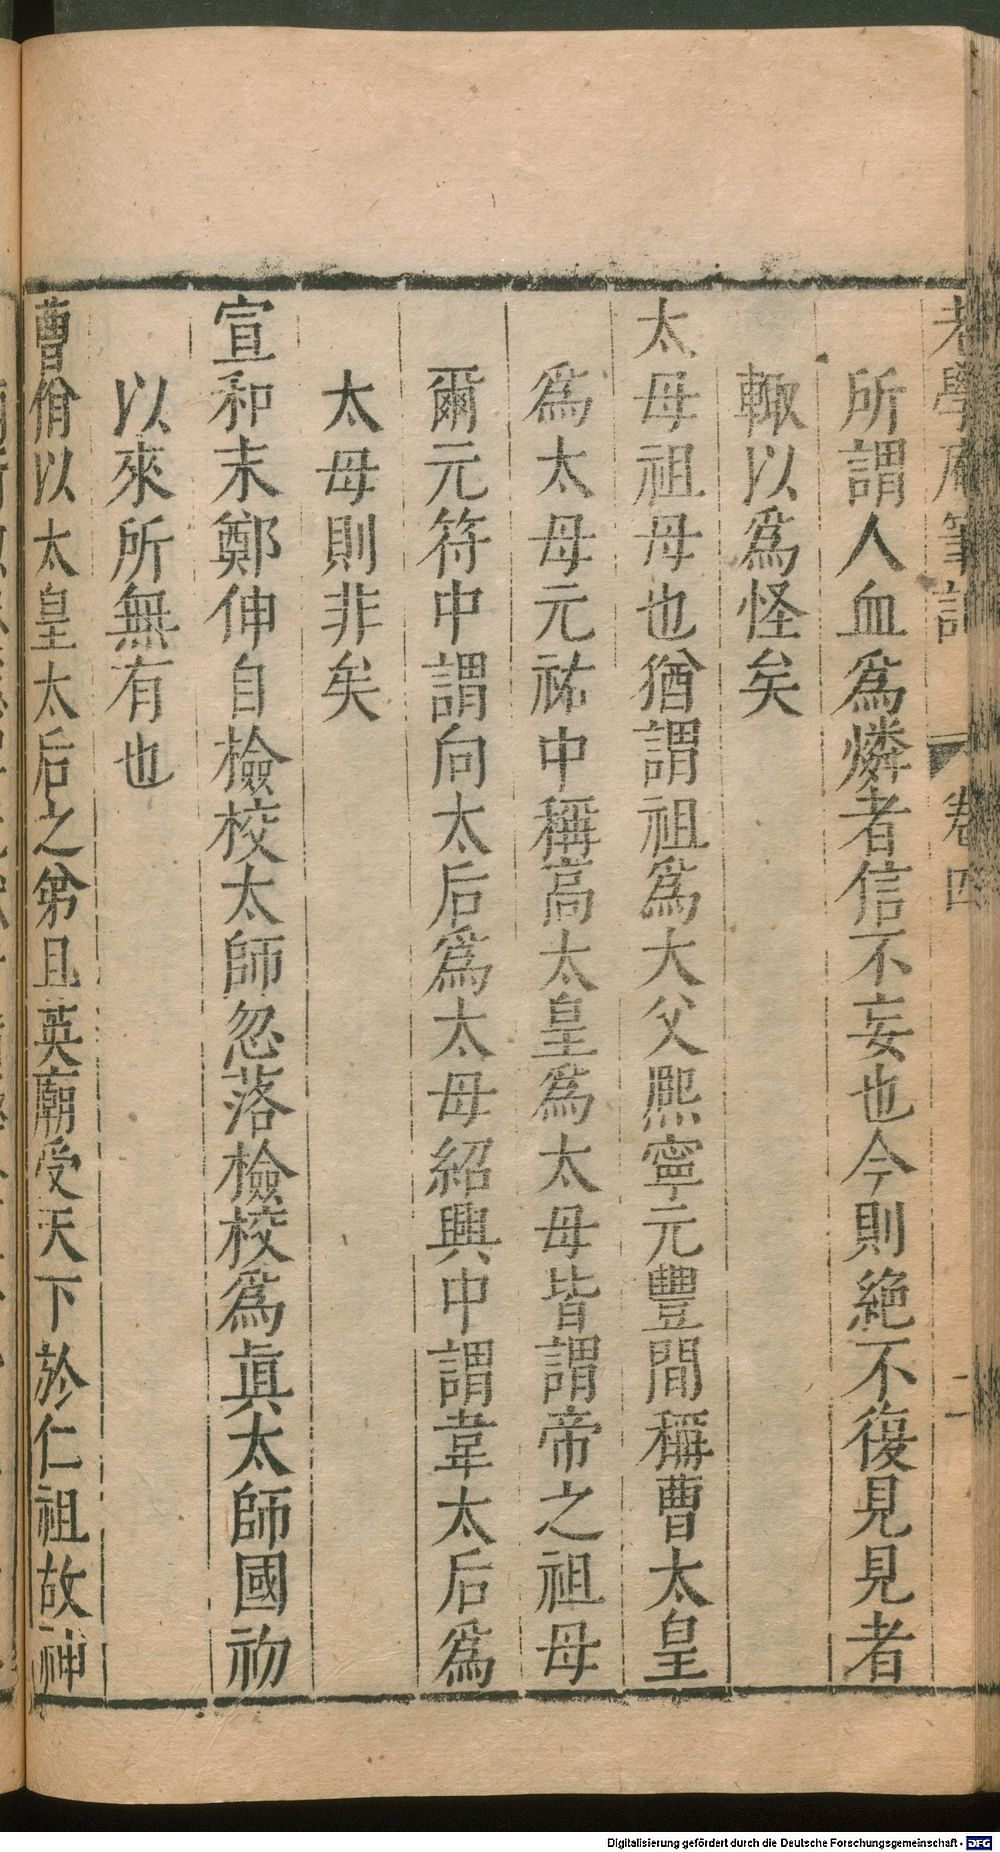 老學庵筆記 卷四 二
所謂人血為燐者信不妄也今則絕不復見見者
輙以為怪矣
太母祖母也猶謂祖為大父熈寧元豐間稱曹太皇
為太母元祐中稱高太皇為太母皆謂帝之祖母
爾元符中謂向太后為太母紹興中謂韋太后為
太母則非矣
宣和末鄭伸自檢校太師忽落檢校為眞太師國初
以來所無有也
曹佾以太皇太后之弟且英廟受天下於仁祖故神
Digitalisierung gefördert durch die Deutsche Forschungsgemeinschaft - DFG